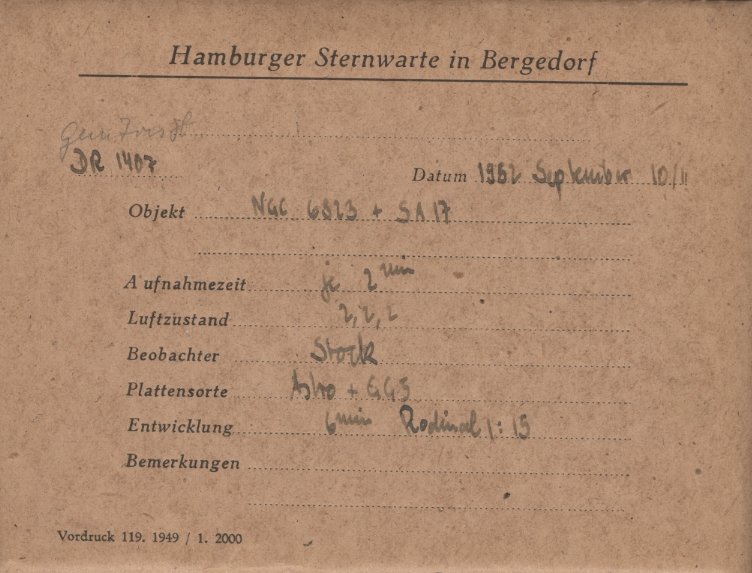 Hamburger Sternwarte in Bergedorf
DR 1407
Datum 1952 September 10/11
Objekt NGC 6823 + SA 17
Aufnahmezeit je 2 min
Luftzustand 2, 2, 2
Beobachter Stock
Plattensorte Astro + GG5
Entwicklung 6 min Rodinal 1:15
Bemerkungen
Vordruck 119. 1949 / 1. 2000